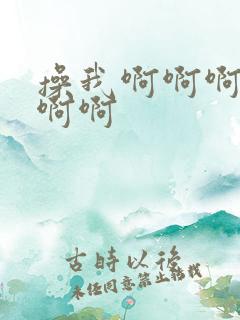 操我 啊啊啊
啊啊
古時以後
未任同意禁止轉找